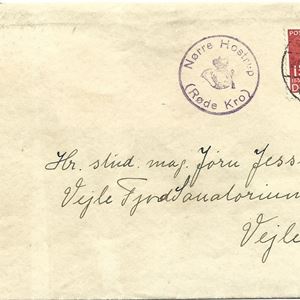 Nørre Hostrup
(Røde Kro)
PO
15
D
Hr. stud. mag. Jørn Jess
Vejle Fjord Sanatorium
Vejle